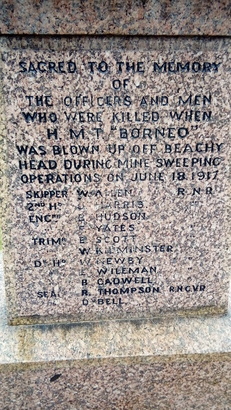 SACRED TO THE MEMORY
OF
THE OFFICERS AND MEN
WHO WERE KILLED WHEN
H.M.T. "BORNEO"
WAS BLOWN UP OFF BEACHY
HEAD DURING MINE SWEEPING
OPERATIONS ON JUNE 18.1917
SKIPPER W. ALLEN R.N.R.
2ND HD HARRIS
ENGRS HUDSON
YATES
TRIMR SCOTT
W. KILMINSTER
DK HD NEWBY
WILEMAN
B. CADWELL
SEA R. THOMPSON R.N.C.V.R.
D. BELL